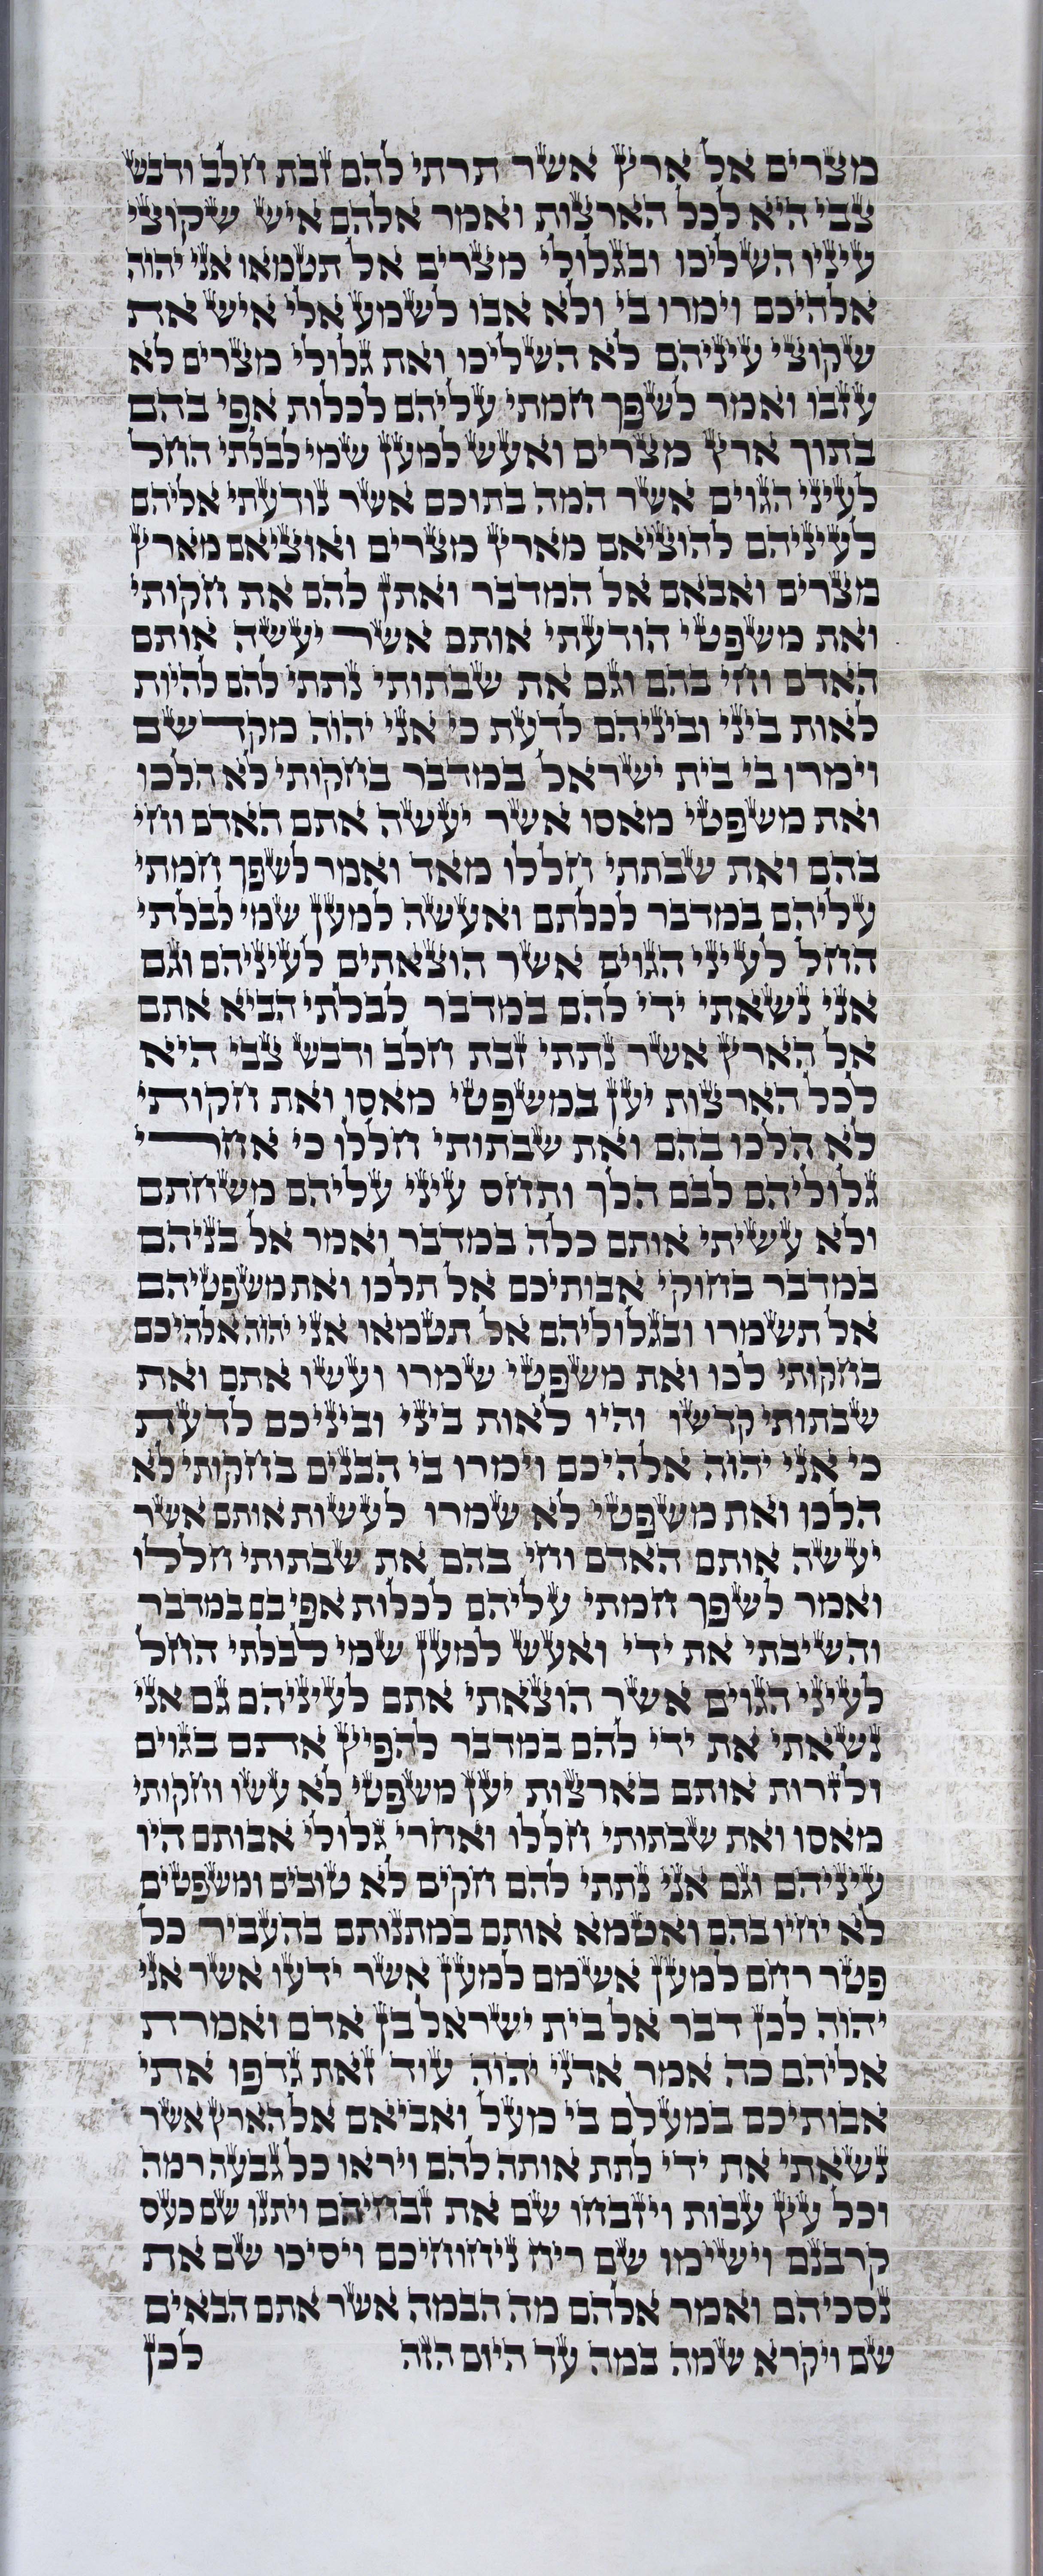 מצרים אל ארץ אשר תרתי להם זבת חלב ודבש
צבי היא לכל הארצות ואמר אלהם איש שקוצי
עיניו השליכו ובגלולי מצרים אל תטמאו אני יהוה
אלהיכם וימרו בי ולא אבו לשמע אלי איש את
שקוצי עיניהם לא השליכו ואת גלולי מצרים לא
עזבו ואמר לשפך חמתי עליהם לכלות אפי בהם
בתוך ארץ מצרים ואעש למען שמי לבלתי החל
לעיני הגוים אשר המה בתוכם אשר נודעתי אליהם
לעיניהם להוציאם מארץ מצרים ואוציאם מארץ
מצרים ואבאם אל המדבר ואתן להם את חקותי
ואת משפטי הודעתי אותם אשר יעשה אותם
האדם וחי בהם וגם את שבתותי נתתי להם להיות
לאות ביני וביניהם לדעת כי אני יהוה מקדשם
וימרו בי בית ישראל במדבר בחקותי לא הלכו
ואת משפטי מאסו אשר יעשה אתם האדם וחי
בהם ואת שבתתי חללו מאד ואמר לשפך חמתי
עליהם במדבר לכלתם ואעשה למען שמי לבלתי
החל לעיני הגוים אשר הוצאתים לעיניהם וגם
אני נשאתי ידי להם במדבר לבלתי הביא אתם
אל הארץ אשר נתתי זבת חלב ודבש צבי היא
לכל הארצות יען במשפטי מאסו ואת חקותי
לא הלכו בהם ואת שבתותי חללו כי אחרי
גלוליהם לבם הלך ותחס עיני עליהם משחתם
ולא עשיתי אותם כלה במדבר ואמר אל בניהם
במדבר בחוקי אבותיכם אל תלכו ואת משפטיהם
אל תשמרו ובגלוליהם אל תטמאו אני יהוה אלהיכם
בחקותי לכו ואת משפטי שמרו ועשו אתם ואת
שבתותי קדשו והיו לאות ביני וביניכם לדעת
כי אני יהוה אלהיכם וימרו בי הבנים בחקותי לא
הלכו ואת משפטי לא שמרו לעשות אותם אשר
יעשה אותם האדם וחי בהם את שבתותי חללו
ואמר לשפך חמתי עליהם לכלות אפי בם במדבר
והשיבתי את ידי ואעש למען שמי לבלתי החל
לעיני הגוים אשר הוצאתי אתם לעיניהם גם אני
נשאתי את ידי להם במדבר להפיץ אתם בגוים
ולזרות אותם בארצות יען משפטי לא עשו וחקותי
מאסו ואת שבתותי חללו ואחרי גלולי אבותם היו
עיניהם וגם אני נתתי להם חקים לא טובים ומשפטים
לא יחיו בהם ואטמא אותם במתנותם בהעביר כל
פטר רחם למען אשמם למען אשר ידעו אשר אני
יהוה לכן דבר אל בית ישראל בן אדם ואמרת
אליהם כה אמר אדני יהוה עוד זאת גדפו אתי
אבותיכם במעלם בי מעל ואביאם אל הארץ אשר
נשאתי את ידי לתת אותה להם ויראו כל גבעה רמה
וכל עץ עבות ויזבחו שם את זבחיהם ויתנו שם כעס
קרבנם וישימו שם ריח ניחוחיכם ויסיכו שם את
נסכיהם ואמר אלהם מה הבמה אשר אתם הבאים
שם ויקרא שמה במה עד היום הזה לכן